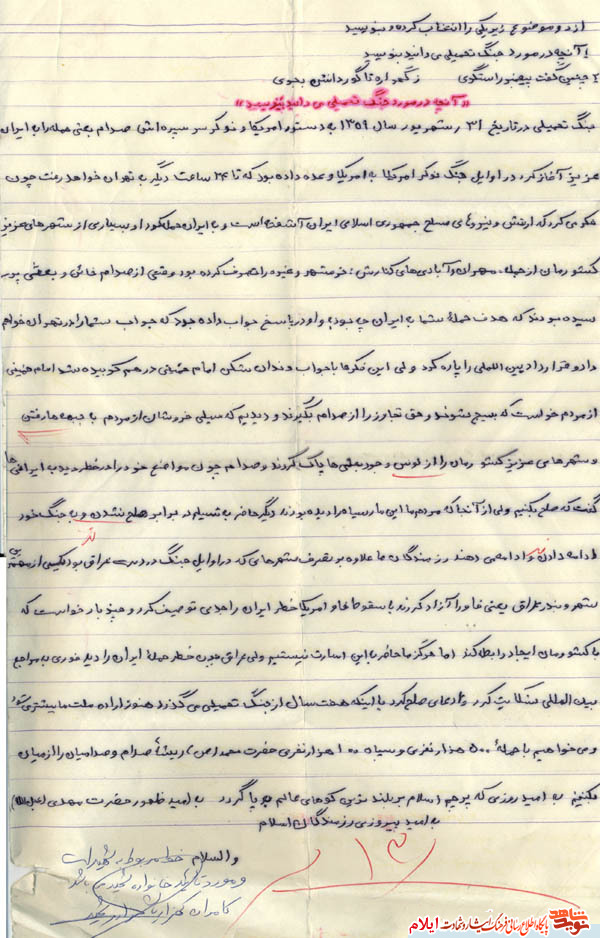 از دو موضوع زیر یکی را انتخاب کرده و بنویسید
۱ آنچه در مورد جنگ تحمیلی می دانید بنویسید
۲ چنین گفت پیغمبر راستگوی ز گهواره تا گور دانش بجوی
«آنچه در مورد جنگ تحمیلی می دانید بنویسید»
جنگ تحمیلی در تاریخ ۳۱ شهریور سال ۱۳۵۹ به دستور آمریکا و نوکر سر سپرده اش صدام یعنی حمله را به ایران
عزیز آغاز کرد در اوایل جنگ نوکر امریکا به امریکا وعده داده بود که تا ۲۴ ساعت دیگر به تهران خواهد رفت چون
فکر می کرد که ارتش و نیروهای مسلح جمهوری اسلامی ایران آشفته است و به ایران حمله کرد و بسیاری از شهرهای عزیز
کشورمان از جمله مهران و آبادی های کنارش، خرمشهر و غیره را تصرف کرده بود وقتی از صدام خائن و بعثی پر
سیده بودند که هدف حملهٔ شما به ایران چه بود؟ و او در پاسخ جواب داده بود که جواب شما را در تهران خواهم
داد و قرارداد بین المللی را پاره کرد ولی این فکرها با جواب دندان شکن امام خمینی در هم کوبیده شد امام خمینی
از مردم خواست که بسیج بشوند و حق تجاوز را از صدام بگیرند و دیدیم که سیلی خروشان از مردم به جبهه ها رفتن
و شهرهای عزیز کشورمان را از لوس وجود بعثی ها پاک کردند و صدام چون مواضع خود را در خطر دید به ایرانی ها
گفت که صلح بکنیم ولی از آنجا که مردم ما این مار سیاه را دیده بودند دیگر حاضر به تسلیم در برابر صلح نشدن و به جنگ خود
ادامه دادن و ادامه می دهند رزمندگان ما علاوه بر تصرف شهرهای که در اوایل جنگ در دست عراق بود یکی از مهم ترین
شهر و بندر عراق یعنی فاو را آزاد کردند با سقوط فاو امریکا خطر ایران را جدی توصیف کرد و چند بار خواست که
با کشورمان ایجاد رابطه کند اما هرگز ما حاضر به این اسارت نیستیم ولی عراق چون خطر حملهٔ ایران را دید فوری به مراجع
بین المللی شکایت کرد و ادعای صلح کرد با اینکه هفت سال از جنگ تحمیلی می گذرد هنوز اراده ملت ما بیشتر می شود
و می خواهیم با حملهٔ ۵۰۰ هزار نفری و سپاه ۱۰۰ هزار نفری حضرت محمد (ص) ریشهٔ صدام و صدامیان را از میان
بکنیم به امید روزی که پرچم اسلام بر بلندترین کوههای عالم بر پا گردد به امید ظهور حضرت مهدی (عجل الله)
به امید پیروزی رزمندگان اسلام
والسلام
خط مربوط به شهید است
و مورد تأیید خانواده شهید می باشد
۱۳
نوید شاهد
پایگاه اطلاع رسانی فرهنگ ایثار و شهادت ایلام